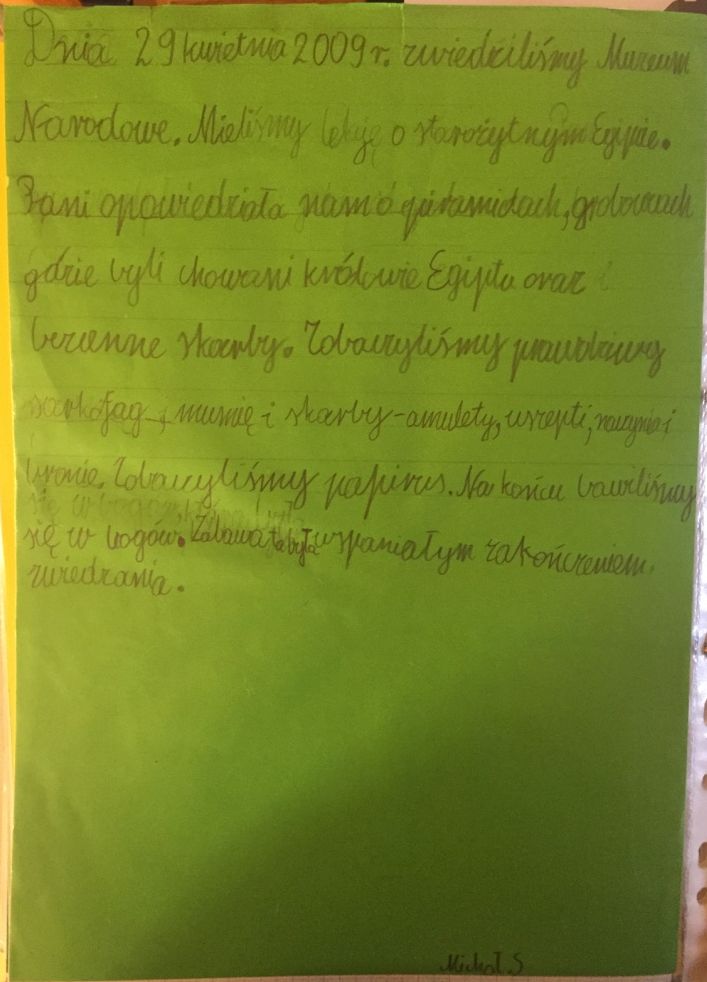 Dnia 29 kwietnia 2009 r. zwiedziliśmy Muzeum
Narodowe. Mieliśmy lekcję o starożytnym Egipcie.
Pani opowiedziała nam o piramidach, grobowcach
gdzie byli chowani królowie Egiptu oraz
bezcenne skarby. Zobaczyliśmy prawdziwy
sarkofag, mumię i skarby - amulety, uszepti, naczynia i
bronie. Zobaczyliśmy papirus. Na końcu bawiliśmy
się w bogów. Zabawa ta była wspaniałym zakończeniem
zwiedzania.
Michał.S